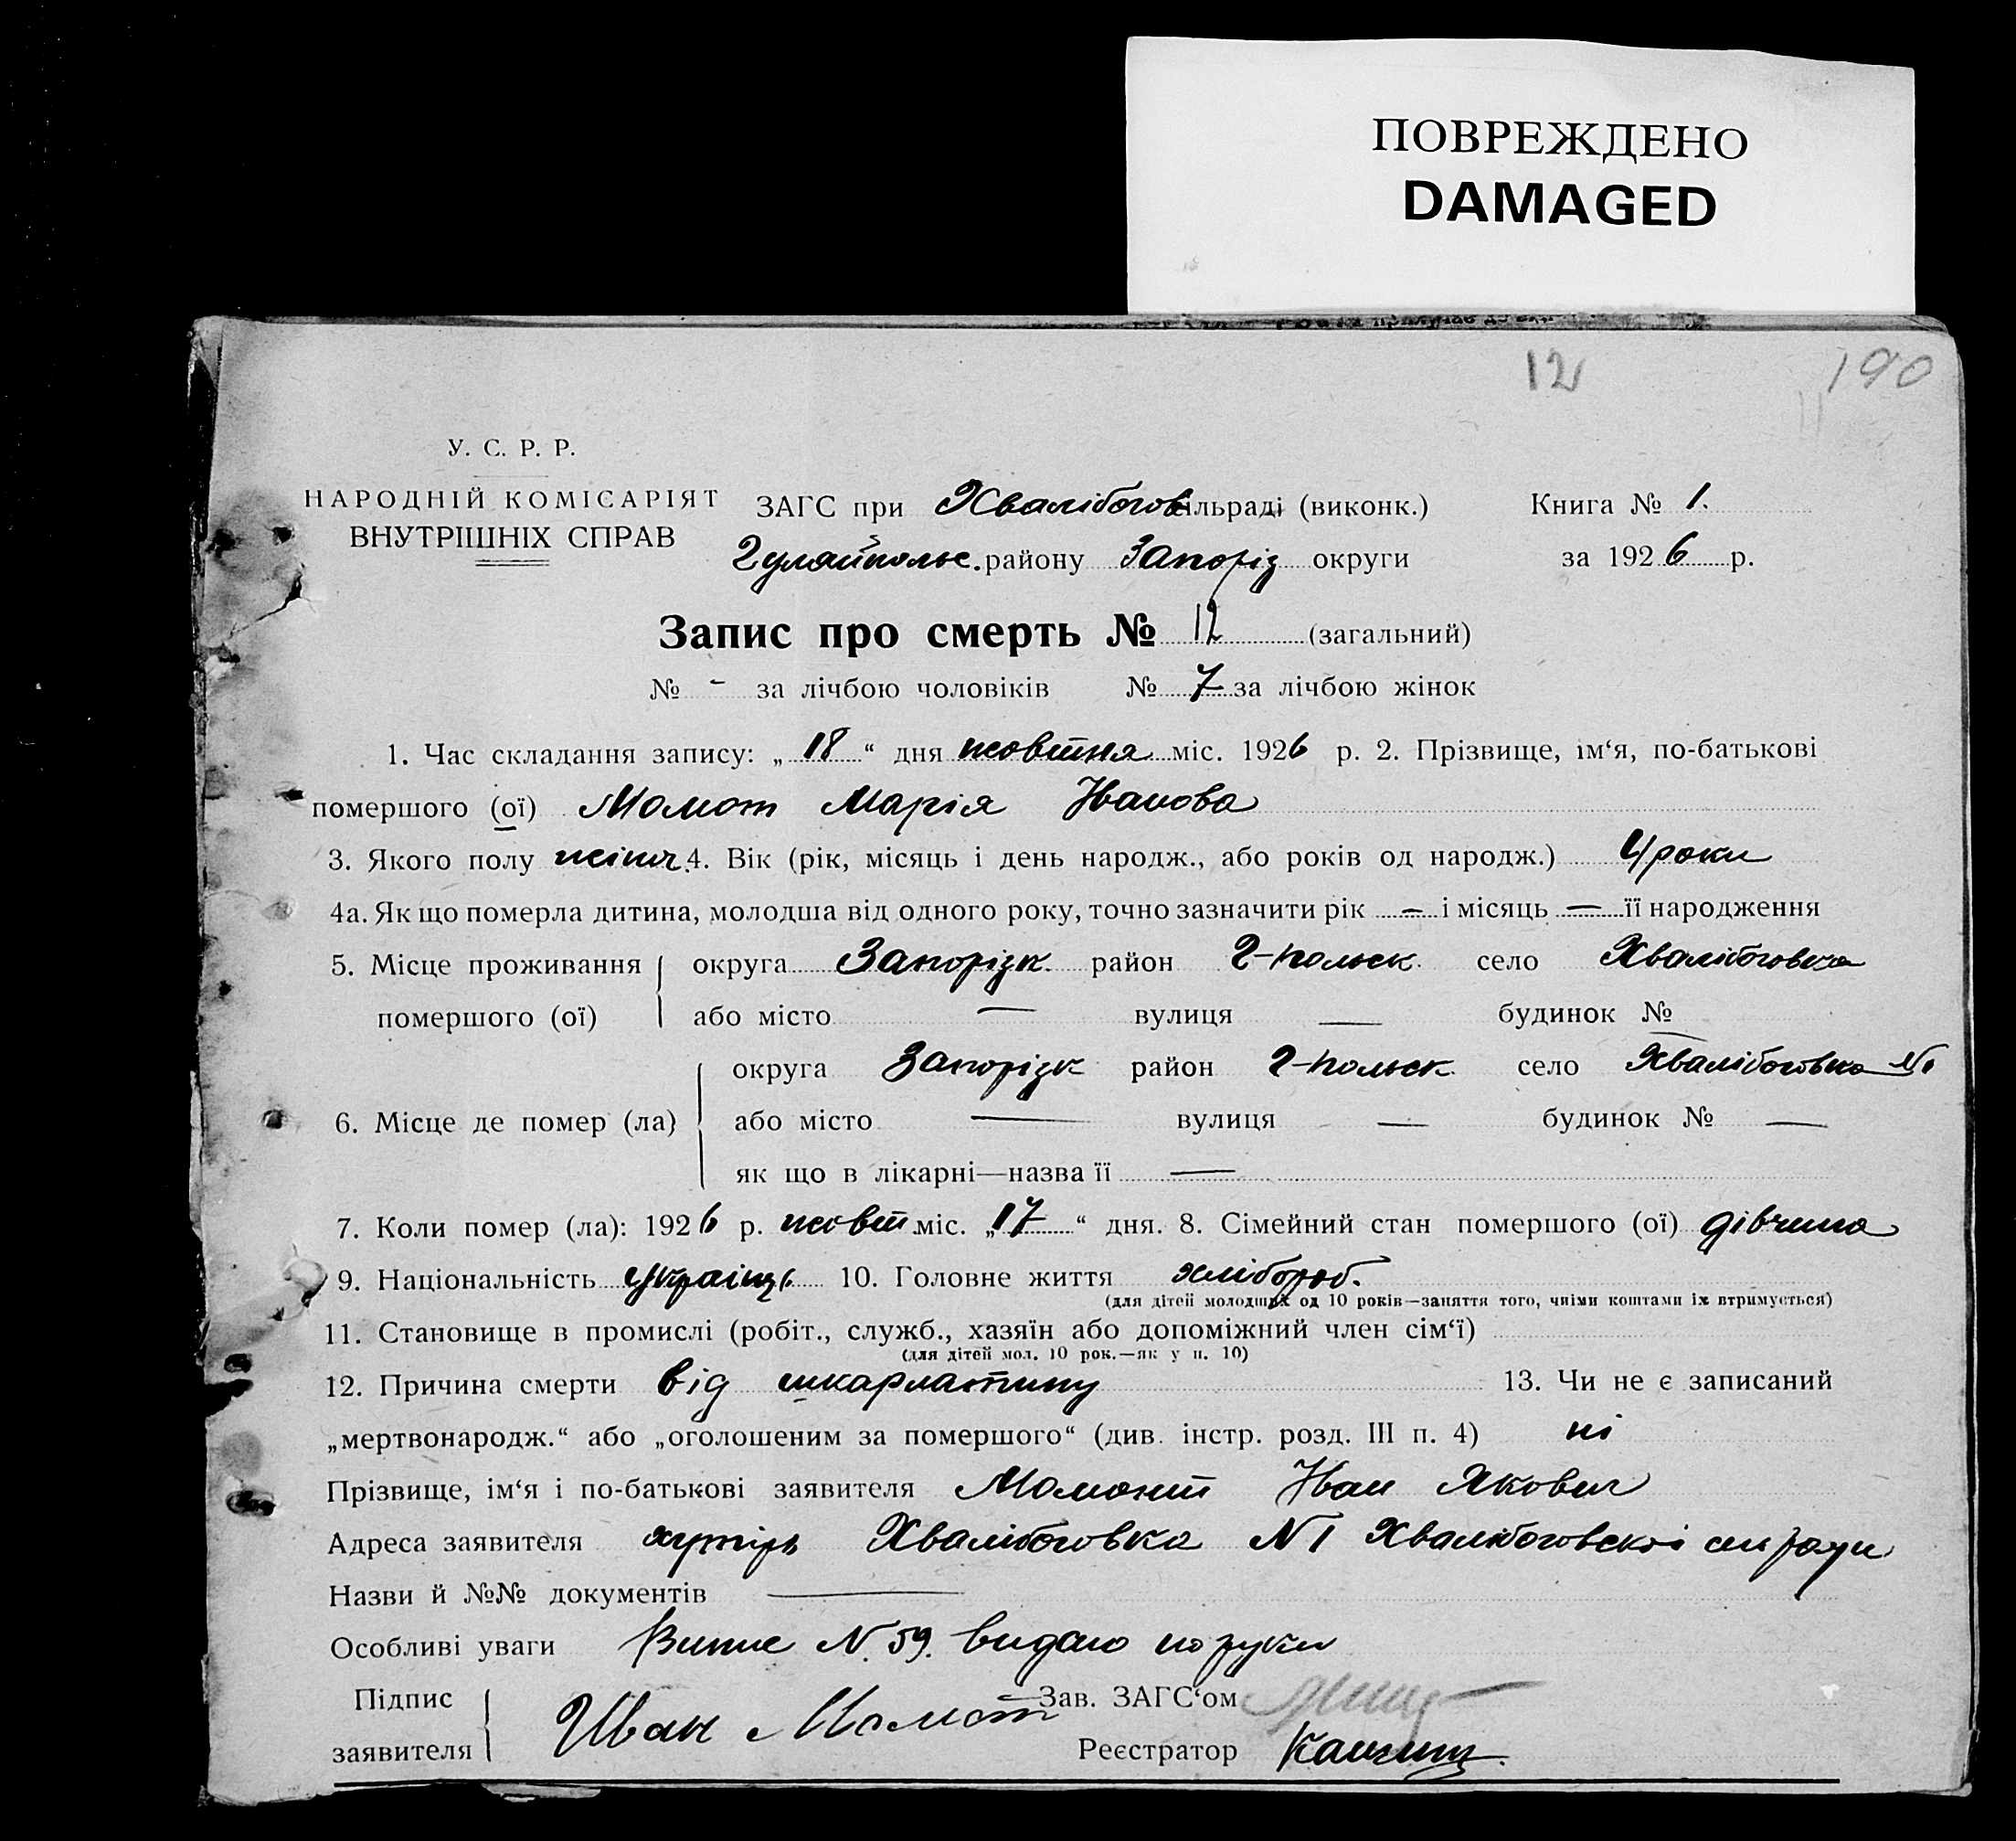 ПОВРЕЖДЕНО
DAMAGED
12 190
У. С. Р. Р.
НАРОДНІЙ КОМІСАРІЯТ
ВНУТРІШНІХ СПРАВ
ЗАГС при Хвалібогов сільраді (виконк.) Книга № 1.
Гуляйпольс. району Запоріз округи за 1926 р.
Запис про смерть № 12 (загальний)
№ - за лічбою чоловіків № 7 за лічбою жінок
1. Час складання запису: „18“ дня жовтня міс. 1926 р. 2. Прізвище, ім‘я, по-батькові
помершого (ої) Момот Марія Іванова
3. Якого полу жіноч. 4. Вік (рік, місяць і день народж., або років од народж.) 4 роки
4а. Як що померла дитина, молодша від одного року, точно зазначити рік — і місяць — її народження
5. Місце проживання помершого (ої) округа Запорізк. район Г-польск. село Хвалібоговка
або місто — вулиця — будинок № —
6. Місце де помер (ла) округа Запорізк район Г-польск село Хвалібоговка №1
або місто — вулиця — будинок № —
як що в лікарні—назва її —
7. Коли помер (ла): 1926 р. жовт. міс. „17“ дня. 8. Сімейний стан помершого (ої) дівчина
9. Національність Україц. 10. Головне життя хлібороб.
(для дітей молодших од 10 років—заняття того, чиїми коштами їх втримується)
11. Становище в промислі (робіт., служб., хазяїн або допоміжний член сім‘ї)
(для дітей мол. 10 рок.—як у п. 10)
12. Причина смерти від шкарлатину 13. Чи не є записаний
„мертвонародж.“ або „оголошеним за помершого“ (див. інстр. розд. III п. 4) ні
Прізвище, ім‘я і по-батькові заявителя Момонт Іван Якович
Адреса заявителя хутірь Хвалібоговка №1 Хвалібоговскоі ради
Назви й №№ документів —
Особливі уваги N. 59. видано на руки
Підпис заявителя Иван Момот Зав. ЗАГС‘ом
Реєстратор